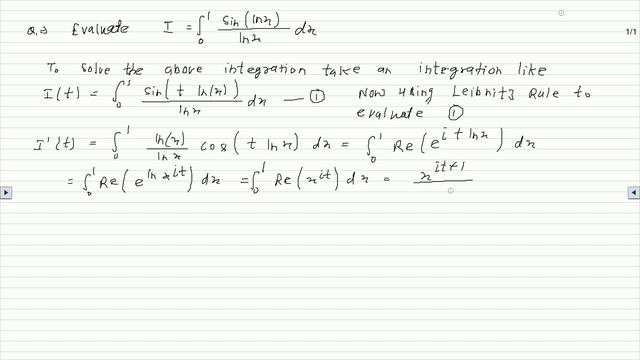 Q.2 Evaluate I = ∫₀¹ sin(ln x) / ln x dx
1/1
To solve the above integration take an integration like
I(t) = ∫₀¹ sin(t ln(x)) / ln x dx — ① Now using Leibnitz Rule to
evaluate ①
I'(t) = ∫₀¹ ln(x) / ln x cos(t ln x) dx = ∫₀¹ Re(e^{i t ln x}) dx
= ∫₀¹ Re(e^{ln x^{it}}) dx = ∫₀¹ Re(x^{it}) dx = x^{it+1} /